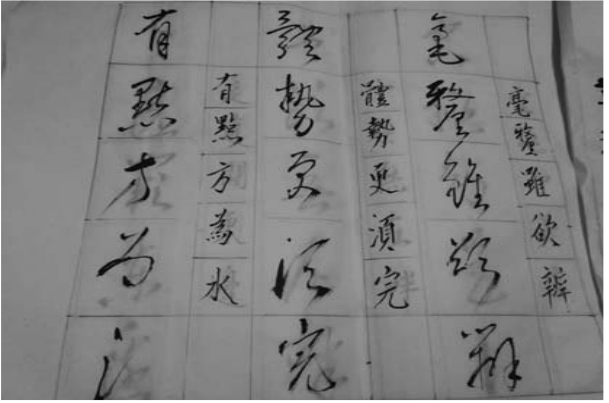 毫釐雖欲辨
毫釐雖欲辨
體勢更湏完
體勢更須完
有點方為水
有點方為水